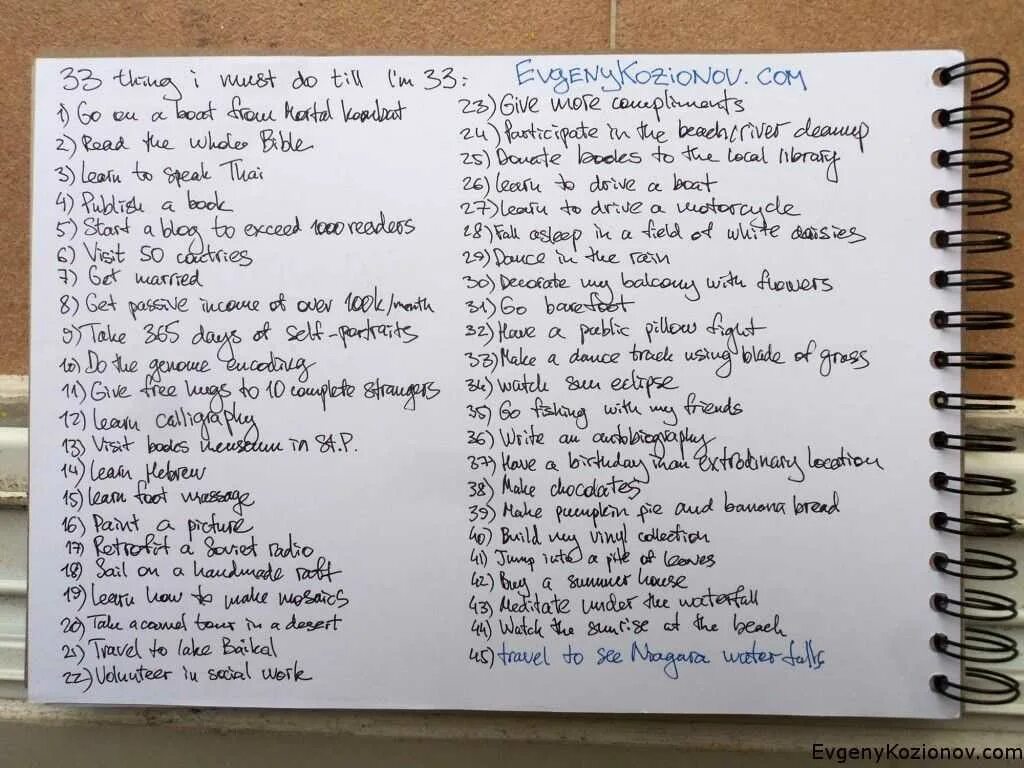 33 thing i must do till I'm 33:
EVGENYKOZIONOV.COM
1) Go on a boat from Mortal Kombat
2) Read the whole Bible
3) Learn to speak Thai
4) Publish a book
5) Start a blog to exceed 1000 readers
6) Visit 50 coutries
7) Get married
8) Get passive income of over 100k/month
9) Take 365 days of self-portraits
10) Do the genome encoding
11) Give free hugs to 10 complete strangers
12) Learn calligraphy
13) Visit books museum in St.P.
14) Learn Hebrew
15) Learn foot massage
16) Paint a picture
17) Retrofit a Soviet radio
18) Sail on a handmade raft
19) Learn how to make mosaics
20) Take a camel tour in a desert
21) Travel to lake Baikal
22) Volunteer in social work
23) Give more compliments
24) Participate in the beach/river cleanup
25) Donate books to the local library
26) Learn to drive a boat
27) Learn to drive a motorcycle
28) Fall asleep in a field of white daisies
29) Dance in the rain
30) Decorate my balcony with flowers
31) Go barefoot
32) Have a public pillow fight
33) Make a dance track using blade of grass
34) Watch sun eclipse
35) Go fishing with my friends
36) Write an autobiography
37) Have a birthday in an extrodinary location
38) Make chocolates
39) Make pumpkin pie and banana bread
40) Build my vinyl collection
41) Jump into a pile of leaves
42) Buy a summer house
43) Meditate under the waterfall
44) Watch the sunrise at the beach
45) travel to see Niagara waterfalls
EvgenyKozionov.com